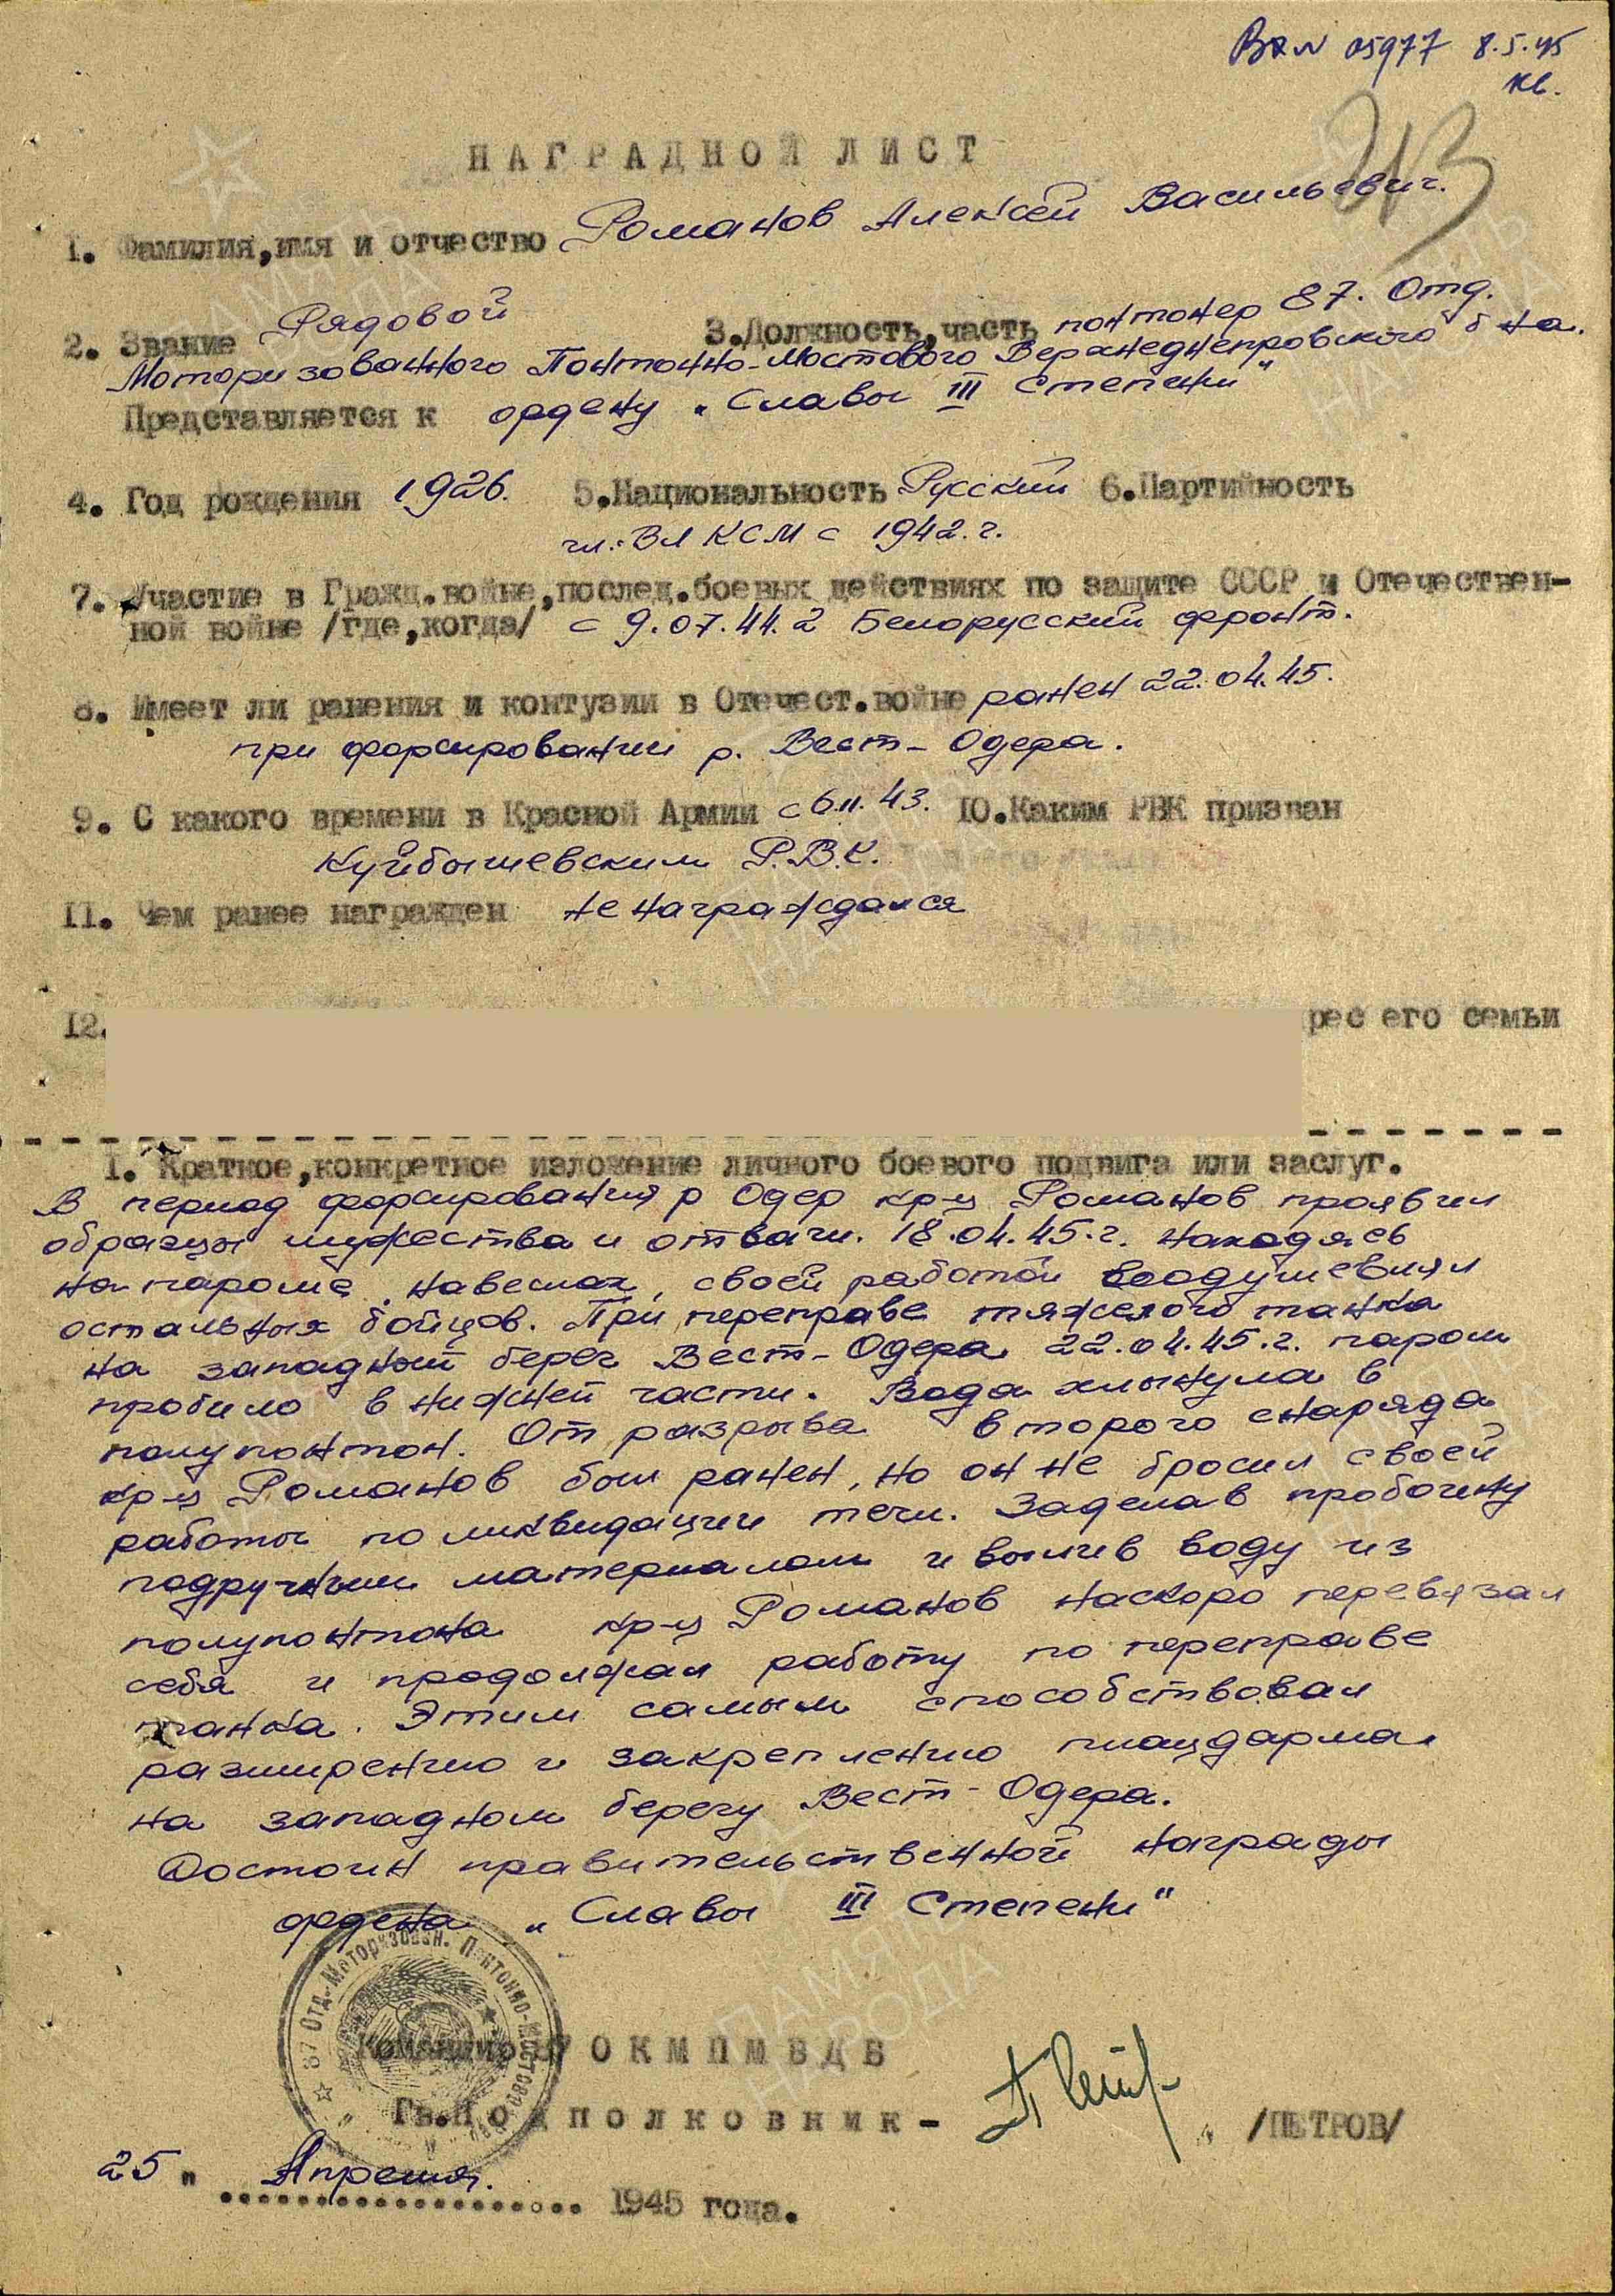 Вх N 05977 8.5.45
213
НАГРАДНОЙ ЛИСТ
1. Фамилия,имя и отчество Романов Алексей Васильевич.
2. Звание Рядовой 3.Должность,часть понтонер 87. Отд.
Моторизованного Понтонно-Мостового Верхнеднепровского б-на.
Представляется к ордену „Славы III Степени"
4. Год рождения 1926. 5.Национальность Русский 6.Партийность
чл. ВЛКСМ с 1942.г.
7. Участие в Гражд.войне,послед.боевых действиях по защите СССР и Отечествен-
ной войне /где,когда/ с 9.07.44. 2 Белорусский фронт.
8. Имеет ли ранения и контузии в Отечест.войне ранен 22.04.45.
при форсировании р. Вест-Одера.
9. С какого времени в Красной Армии с 6.11.43. 10.Каким РВК призван
Куйбышевским Р.В.К.
11. Чем ранее награжден не награждался
12. рес его семьи
I. Краткое,конкретное изложение личного боевого подвига или заслуг.
В период форсирования р Одер кр-ц Романов проявил
образцы мужества и отваги. 18.04.45.г. находясь
на пароме навеслах, своей работой воодушевлял
остальных бойцов. При переправе тяжелого танка
на западный берег Вест-Одера 22.04.45.г. паром
пробило в нижней части. Вода хлынула в
полупонтон. От разрыва второго снаряда
кр-ц Романов был ранен, но он не бросил своей
работы по ликвидации течи. Заделав пробоину
подручным материалом и вылив воду из
полупонтона кр-ц Романов наскоро перевязал
себя и продолжал работу по переправе
танка. Этим самым способствовал
разширению и закреплению плацдарма
на западном берегу Вест-Одера.
Достоин правительственной награды
ордена „Славы III Степени"
87 Отд. Моторизован. Понтонно-Мостовой
Командир 87 ОКМПМВДБ
Гв.Подполковник- /ПЕТРОВ/
25 " Апреля. 1945 года.
ПАМЯТЬ НАРОДА